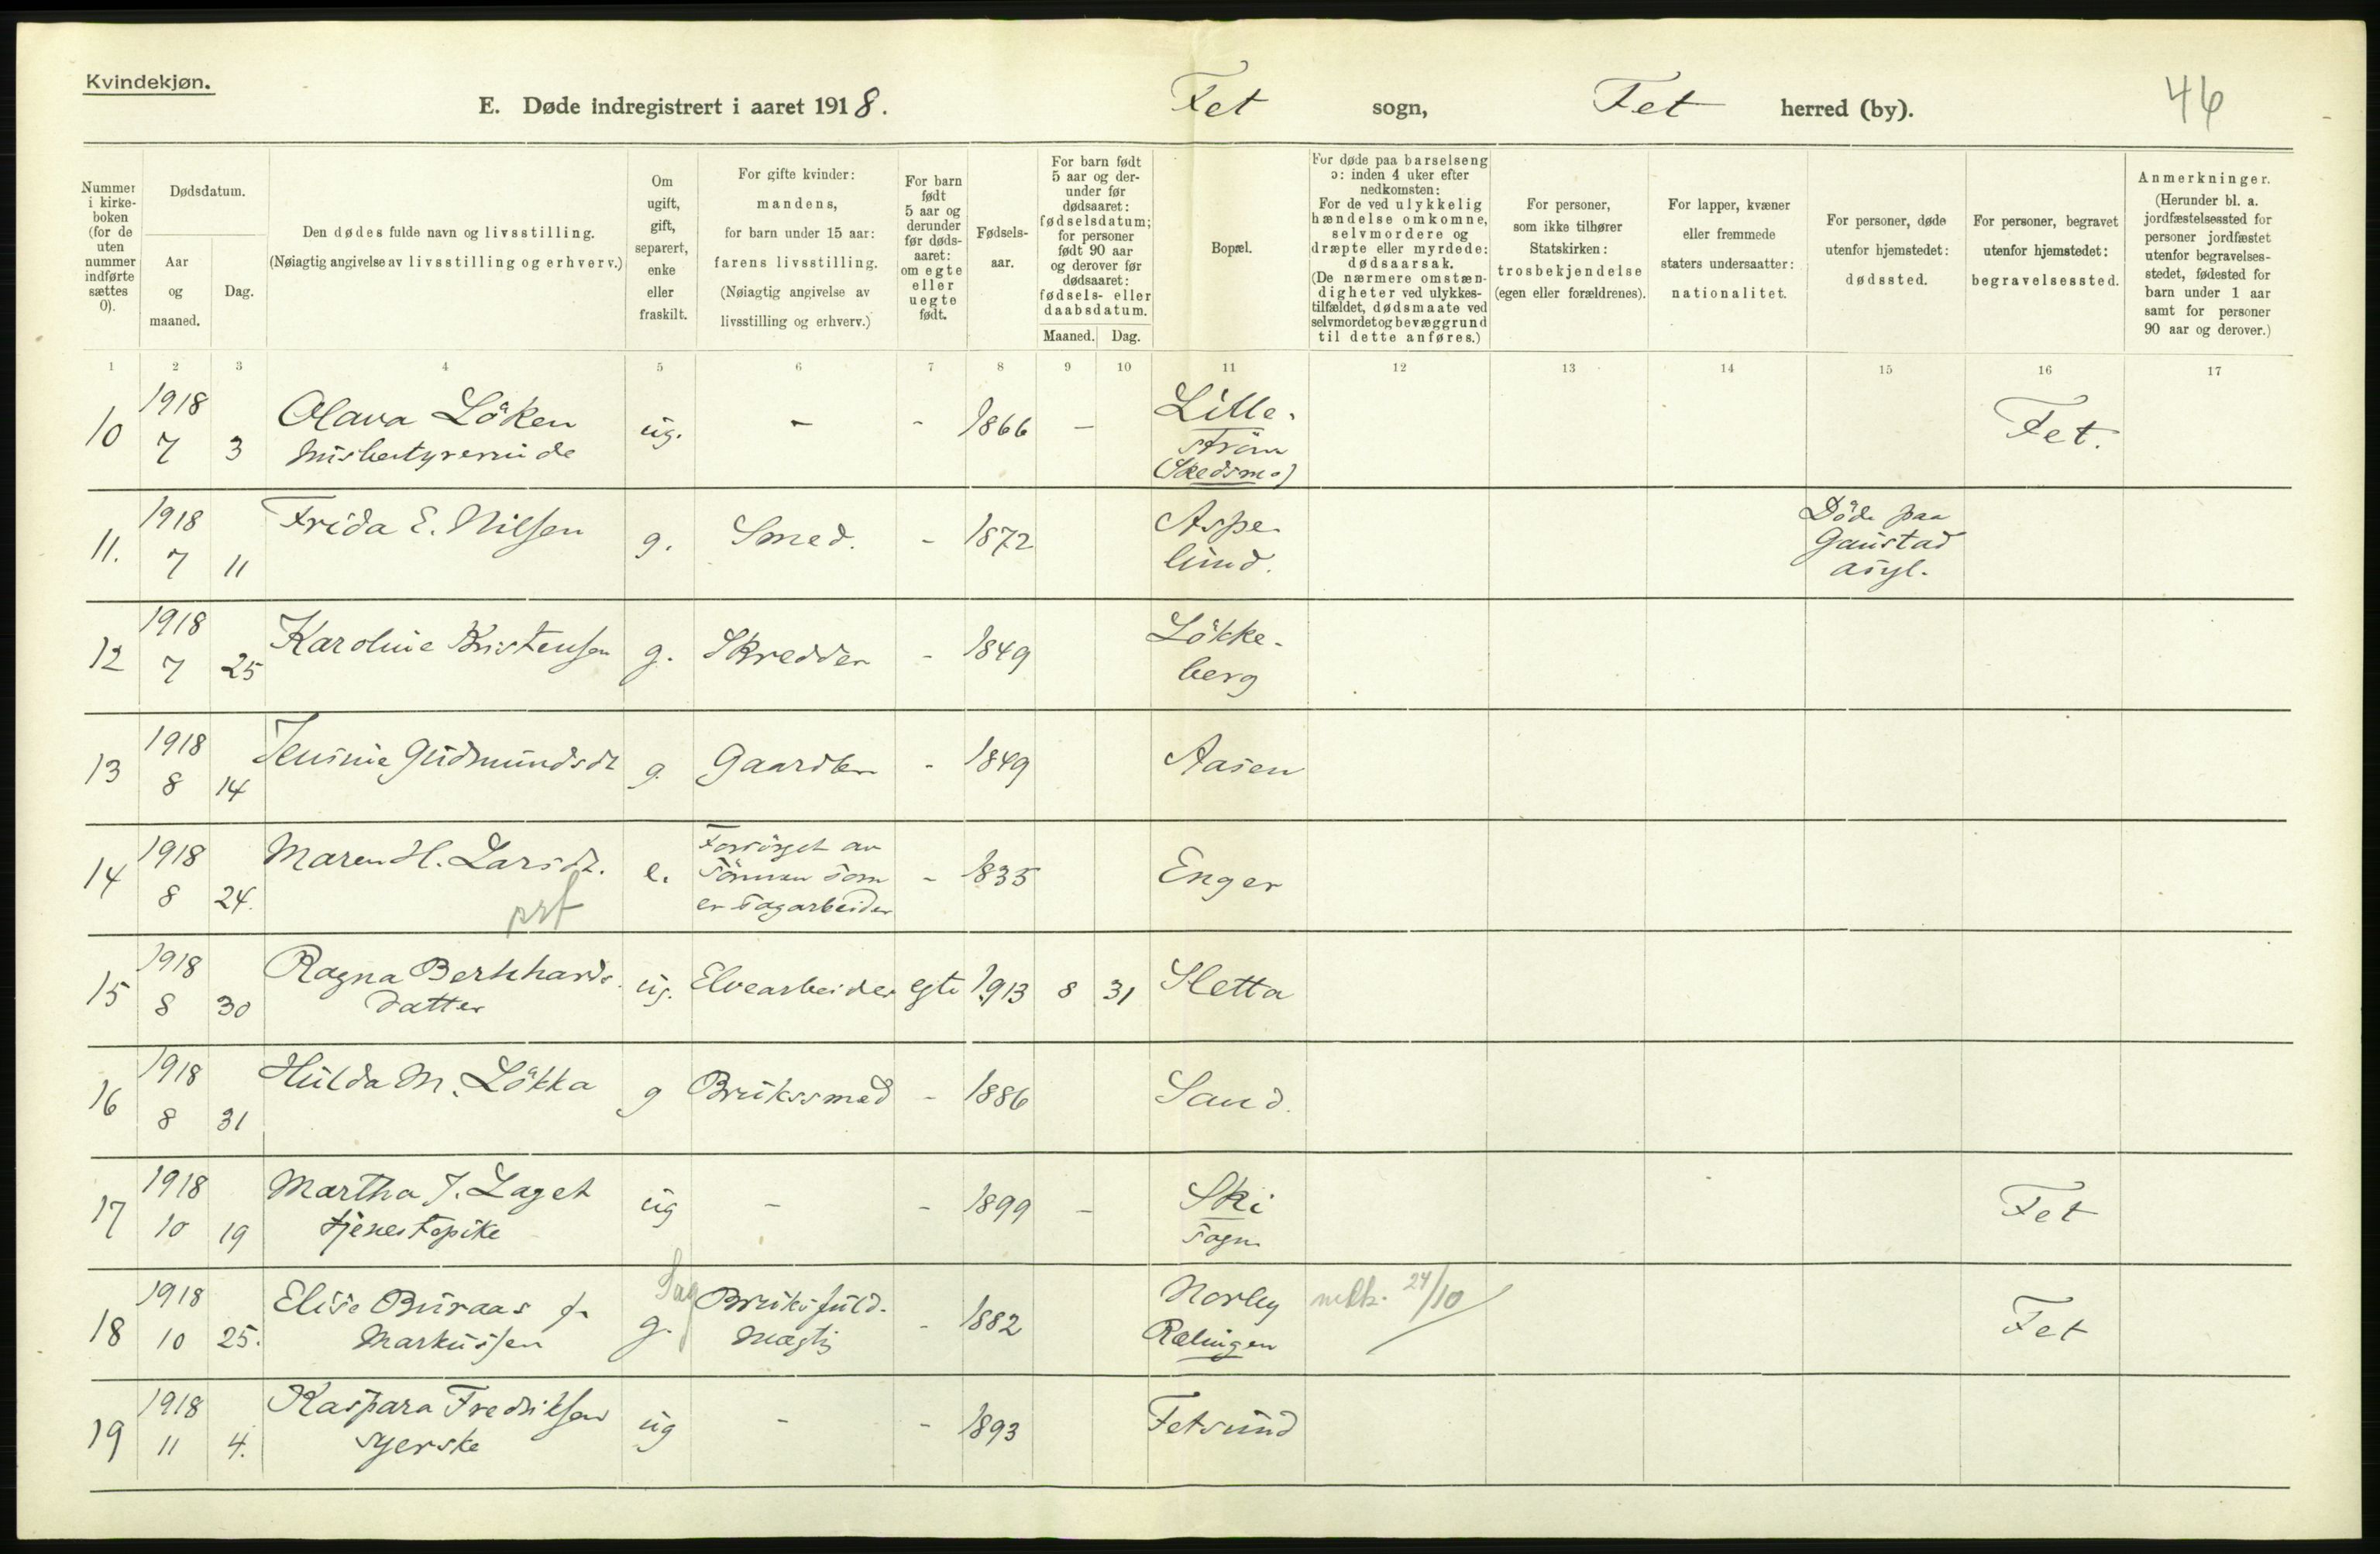 Kvindekjøn.
E. Døde indregistrert i aaret 1918. Fet sogn, Fet herred (by). 46
Nummer i kirkeboken (for de uten nummer indførte sættes 0).
Dødsdatum.
Aar og maaned.
Dag.
Den dødes fulde navn og livsstilling.
(Nøiagtig angivelse av livsstilling og erhverv.)
Om ugift, gift, separert, enke eller fraskilt.
For gifte kvinder: mandens, for barn under 15 aar: farens livsstilling.
(Nøiagtig angivelse av livsstilling og erhverv.)
For barn født 5 aar og derunder før dødsaaret: om egte eller uegte født.
Fødselsaar.
For barn født 5 aar og derunder før dødsaaret: fødselsdatum; for personer født 90 aar og derover før dødsaaret: fødsels- eller daabsdatum.
Maaned. Dag.
Bopæl.
For døde paa barselseng ɔ: inden 4 uker efter nedkomsten:
For de ved ulykkelig hændelse omkomne, selvmordere og dræpte eller myrdede: dødsaarsak.
(De nærmere omstændigheter ved ulykkestilfældet, dødsmaate ved selvmordet og bevæggrund til dette anføres.)
For personer, som ikke tilhører Statskirken: trosbekjendelse (egen eller forældrenes).
For lapper, kvæner eller fremmede staters undersaatter: nationalitet.
For personer, døde utenfor hjemstedet: dødssted.
For personer, begravet utenfor hjemstedet: begravelsessted.
Anmerkninger.
(Herunder bl. a. jordfæstelsessted for personer jordfæstet utenfor begravelsesstedet, fødested for barn under 1 aar samt for personer 90 aar og derover.)
1 2 3 4 5 6 7 8 9 10 11 12 13 14 15 16 17
10 1918 7 3 Olava Löken ug. - - 1866 - Lille-
ström
(Skedsmo) Fet.
11. 1918 7 11 Frida E. Nilsen g. Smed. - 1872 Aspe-
lund. Döde paa
Gaustad
asyl.
12 1918 7 25 Karoline Kristensen g. Skredder - 1849 Lökke-
berg
13 1918 8 14 Jensine Gudmundsdt g. Gaardbr - 1849 Aasen
14 1918 8 24. Maren H. Larsdt. e. Forsörget av
Sönnen som
er sagarbeider - 1835 Enger
15 1918 8 30 Ragna Bernhards-
datter ug. Elvearbeider egte 1913 8 31 Sletta
16 1918 8 31 Hulda M. Lökka g Brukssmed - 1886 Sand.
17 1918 10 19 Martha J. Laget
tjenestepike ug - - 1899 - Ski
sogn Fet
18 1918 10 25. Elise Buraas f.
Markussen g. Sag Bruksfuld-
mægtig - 1882 Norby
Rælingen 24/10 Fet
19 1918 11 4. Kaspara Fredriksen
syerske ug - - 1893 Fetsund